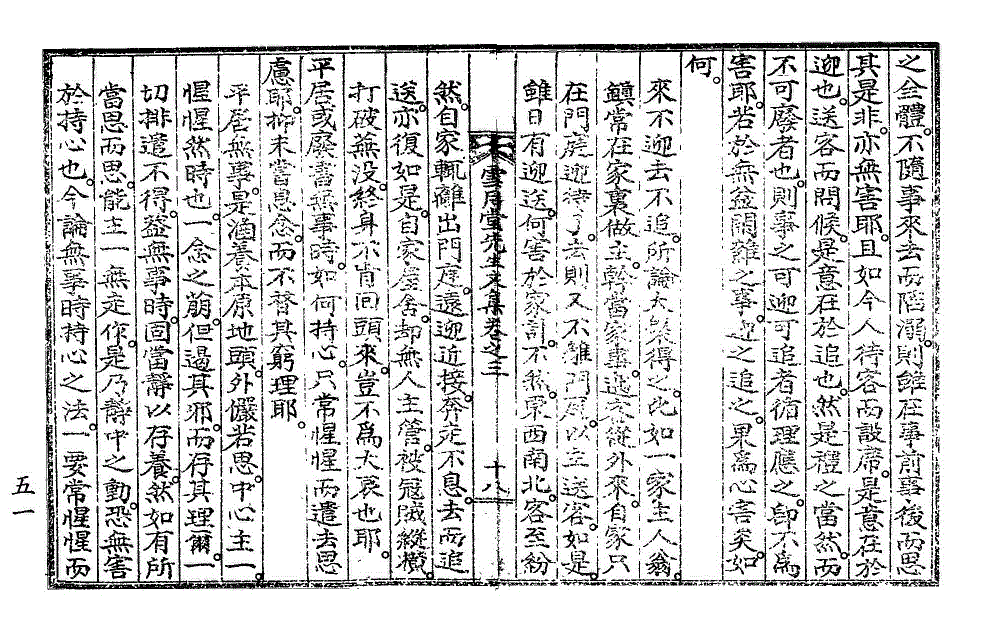 之全體。不隨事來去而陷溺。則雖在事前事後而思
其是非。亦無害耶。且如今人待客而設席。是意在於
迎也。送客而問候。是意在於追也。然是禮之當然。而
不可廢者也。則事之可迎可追者循理應之。卽不爲
害耶。若於無益閒雜之事。迎之追之。果爲心害矣。如
何。
來不迎去不追。所論大槩得之。比如一家主人翁
鎭常在家裏做主。幹當家事。遞客從外來。自家只
在門庭迎待了。去則又不離門庭。以主送客。如是
雖日有迎送。何害於家計。不然。東西南北。客至紛
雪月堂先生文集卷之三
十八
然。自家輒離出門庭。遠迎近接。奔走不息。去而追
送。亦復如是。自家屋舍。却無人主管。被冦賊縱橫。
打破蕪沒。終身不肯回頭來。豈不爲大哀也耶。
平居或廢書無事時。如何持心。只常惺惺而遣去思
慮耶。抑未嘗息念。而不替其窮理耶。
平居無事。是涵養本原地頭。外儼若思。中心主一。
惺惺然時也。一念之萠。但遏其邪。而存其理爾。一
切排遣不得。葢無事時。固當靜以存養。然如有所
當思而思。能主一無走作。是乃靜中之動。恐無害
於持心也。今論無事時持心之法。一要常惺惺而
五一